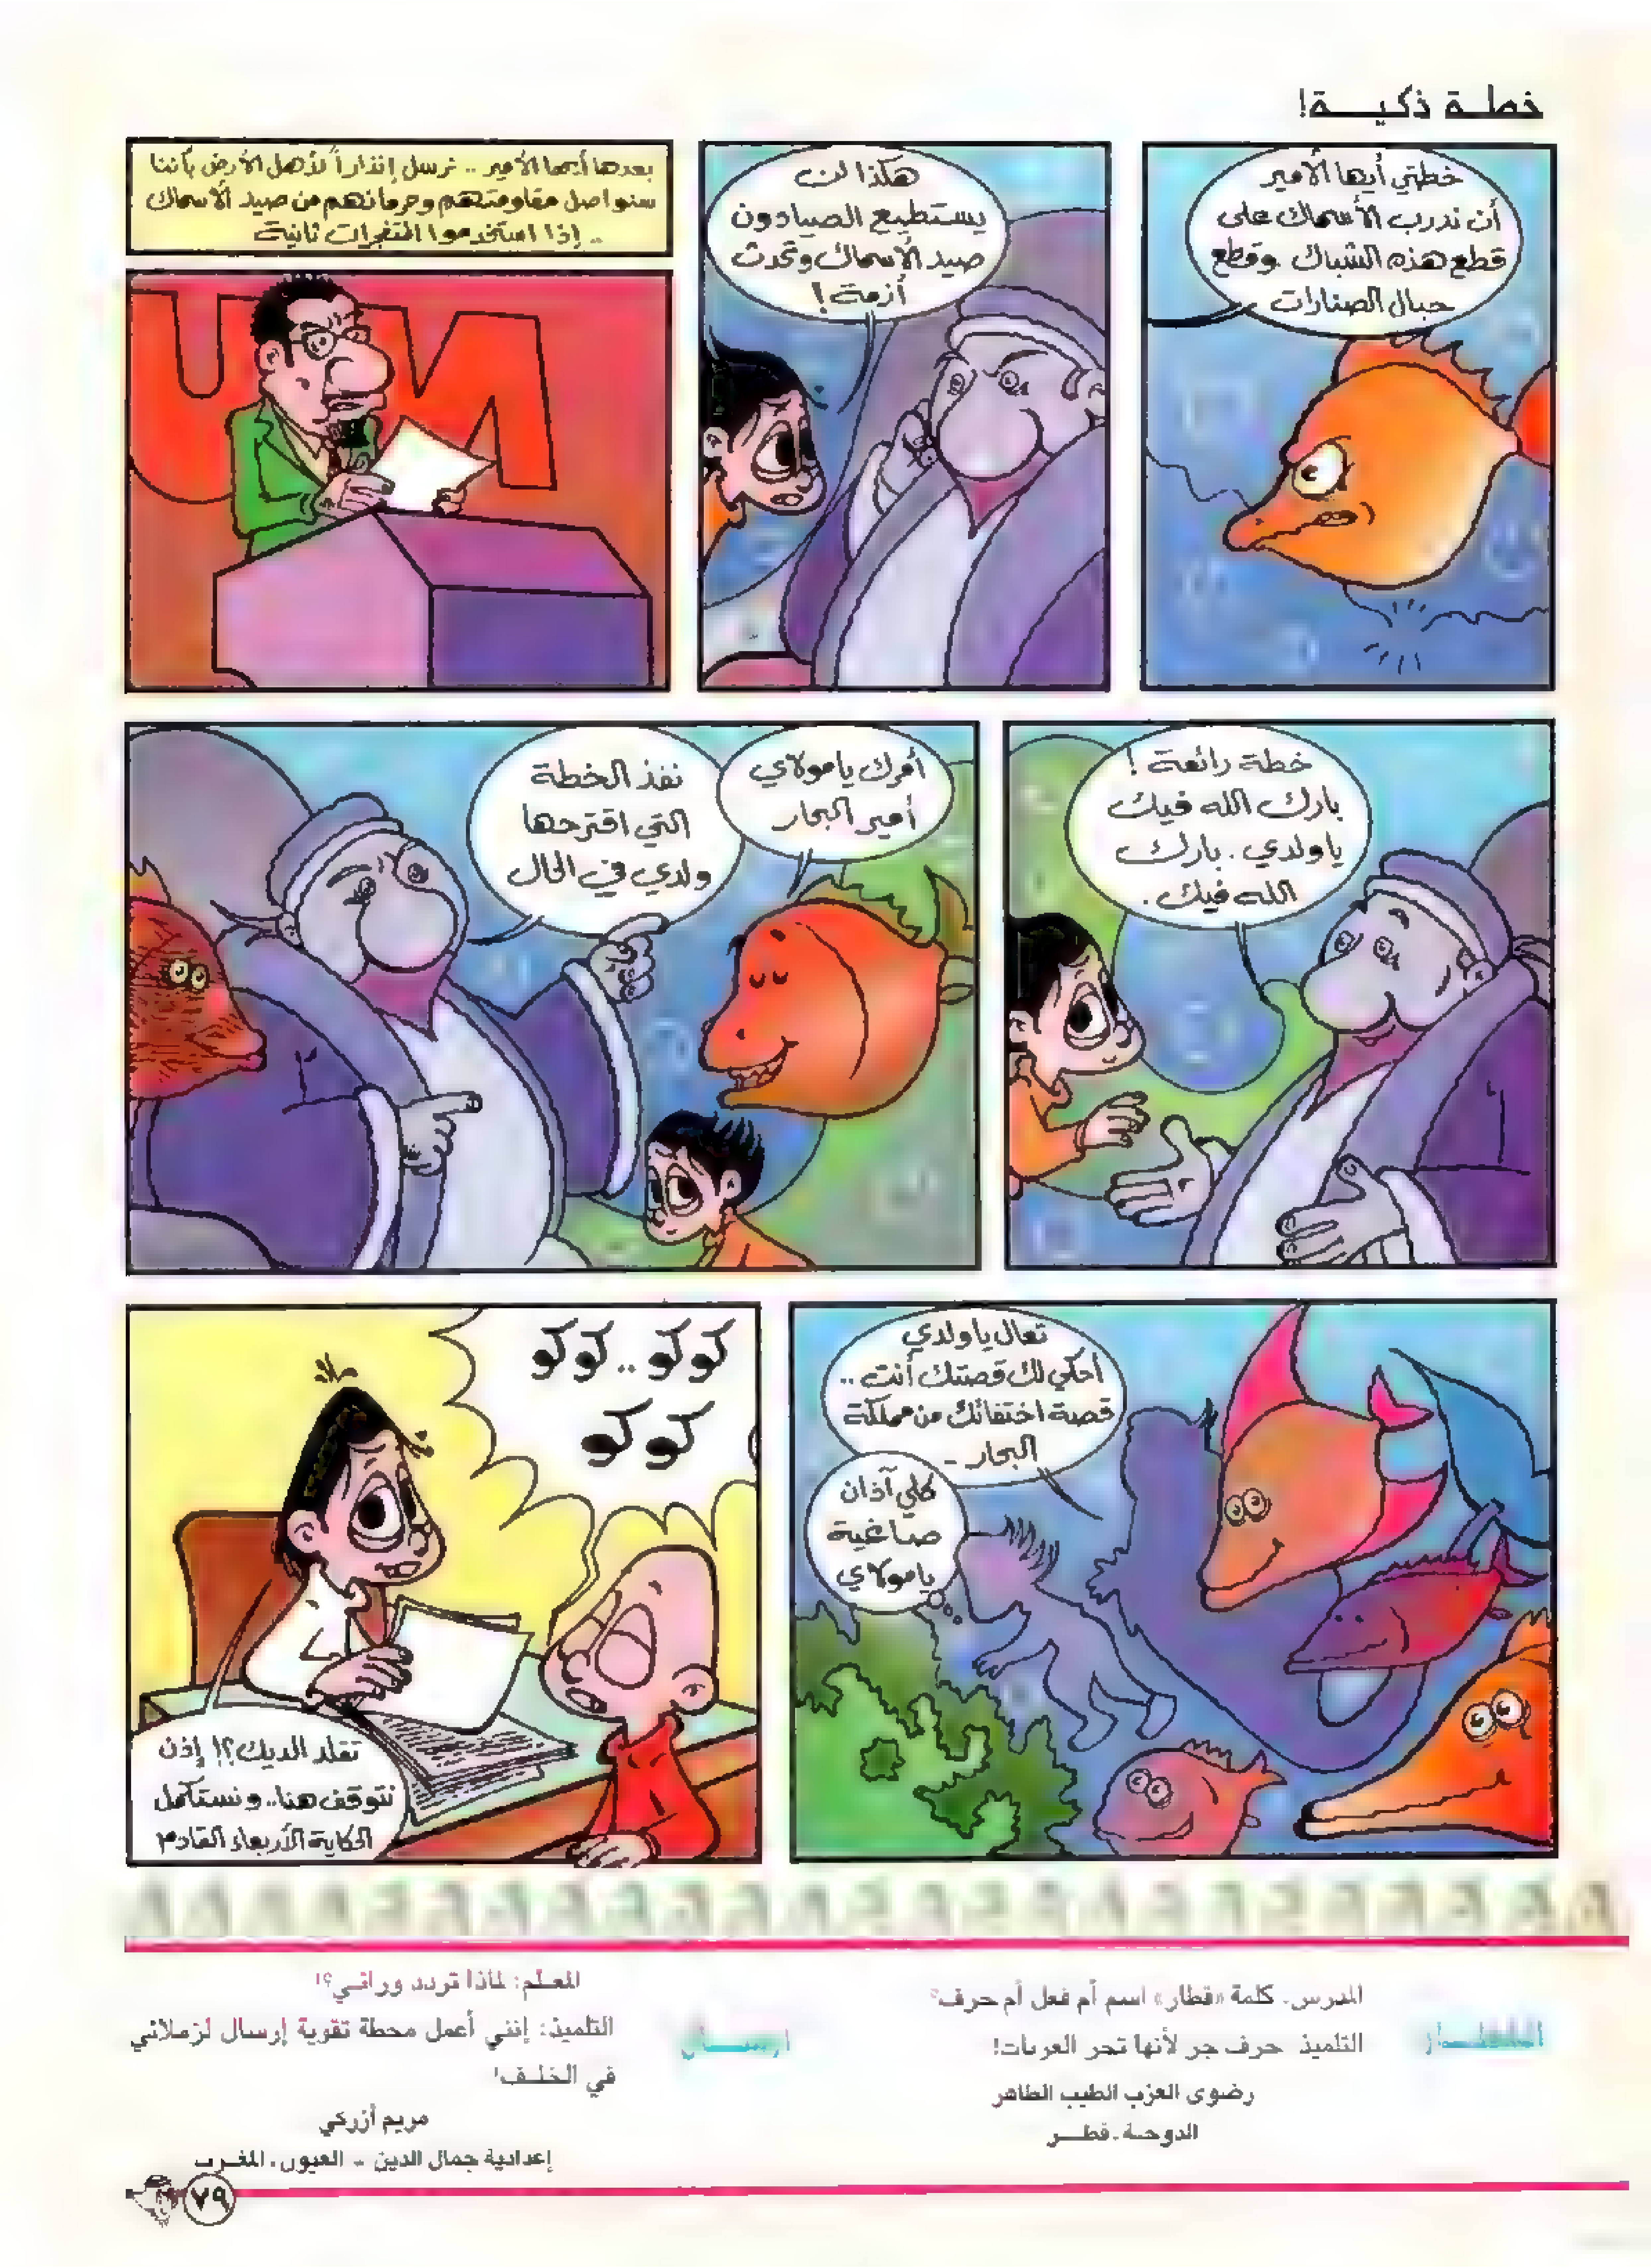 خطة ذكية!
خطتي أيها الأمير
أن ندرب الأسماك على
قطع هذه الشباك وقطع
حبال الصنارات
هكذا لن
يستطيع الصيادون
صيد الأسماك وتحدث
أزمة!
بعدها أيها الأمير .. نرسل إنذاراً لأهل الأرض بأننا
سنواصل مقاومتهم وحرمانهم من صيد الأسماك
إذا استخدموا المتفجرات ثانية ..
UN
خطة رائعة!
بارك الله فيك
يا ولدي . بارك
الله فيك .
أمرك يا مولاي
أمير البحار
نفذ الخطة
التي اقترحها
ولدي في الحال
تعال يا ولدي
احكي لك قصتك أنت ..
قصة اختفائك من مملكة
البحار ..
كلي آذان
صاغية
يا مولاي
كوكو .. كوكو
كوكو
تقلد الديك؟! إذن
نتوقف هنا.. ونستكمل
الحكاية الأربعاء القادم
المدرس. كلمة «قطار» اسم أم فعل أم حرف؟
التلميذ حرف جر لأنها تجر العربات!
رضوى العزب الطيب الطاهر
الدوحة. قطر
إرسال
المعلم: لماذا تردد ورائي؟!
التلميذ: إنني أعمل محطة تقوية إرسال لزملائي
في الخلف!
مريم أزركي
إعدادية جمال الدين - العيون. المغرب
٧٩